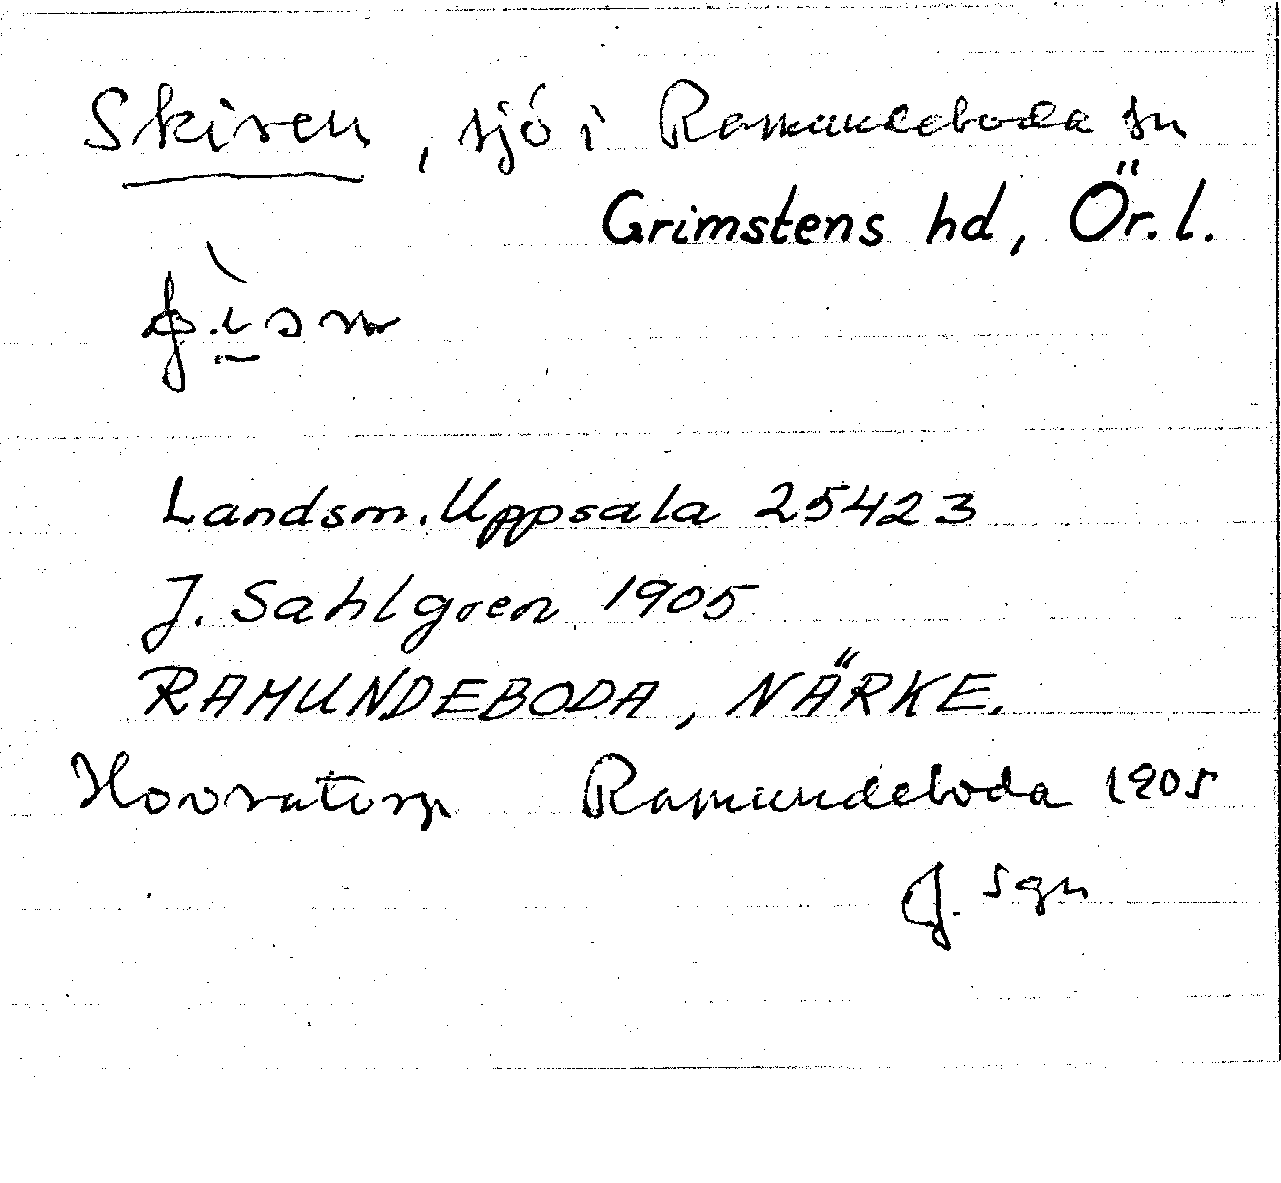 Skiren, sjö i Ramundeboda sn
Grimstens hd, Ör. l.
Landsm. Uppsala 25423
J. Sahlgren 1905
RAMUNDEBODA, NÄRKE.
Ramundeboda 1905
J. Sgn